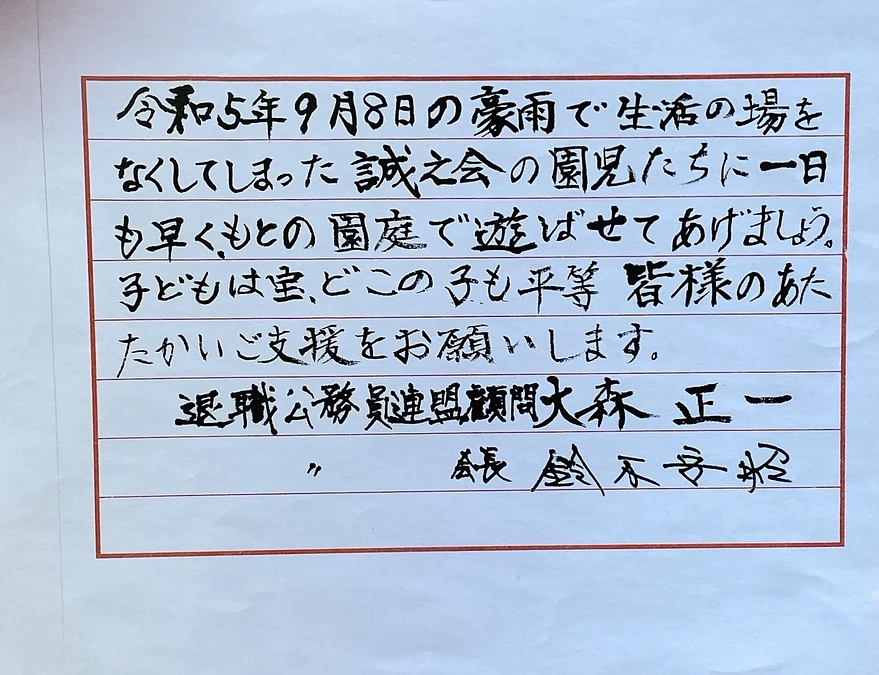 令和5年9月8日の豪雨で生活の場を
なくしてしまった誠之会の園児たちに一日
も早く、もとの園庭で遊ばせてあげましょう。
子どもは宝、どこの子も平等 皆様のあた
たかいご支援をお願いします。
退職公務員連盟顧問大森 正一
〃 会長 鈴木 昭